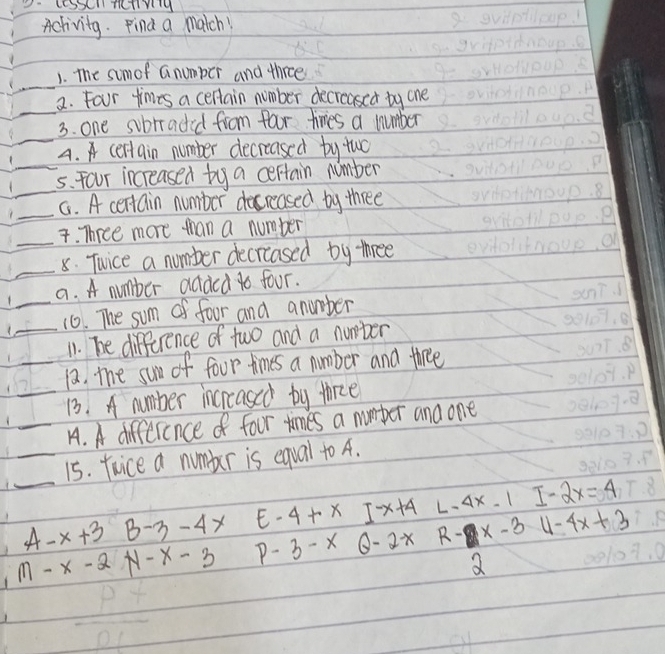 Activity. Find a match!
1. The sum of a number and three
2. Four times a certain number decreased by one
3. one subtracted from four times a number
4. A certain number decreased by two
5. Four increased by a certain number
6. A certain number decreased by three
7. Three more than a number
8. Twice a number decreased by three
9. A number added to four.
10. The sum of four and a number
11. The difference of two and a number
12. the sum of four times a number and three
13. A number increased by three
14. A difference of four times a number and one
15. twice a number is equal to 4.
A-x+3 B-3-4x E-4+x I-x+4 L-4x-1 I-2x=4
M-x-2 N-x-3 P-3-x Q-2x R-x-3 U-4x+3
2